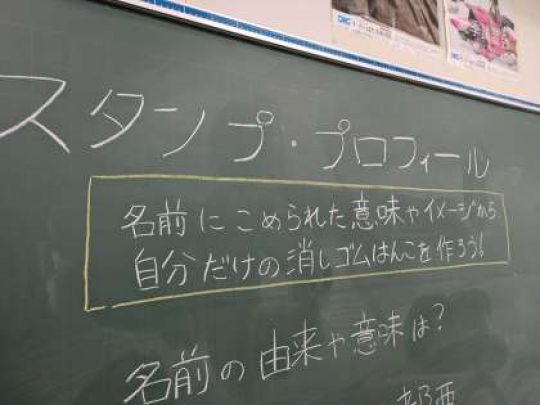 スタンプ・プロフィール
名前にこめられた意味やイメージから
自分だけの消しゴムはんこを作ろう!
名前の由来や意味は?